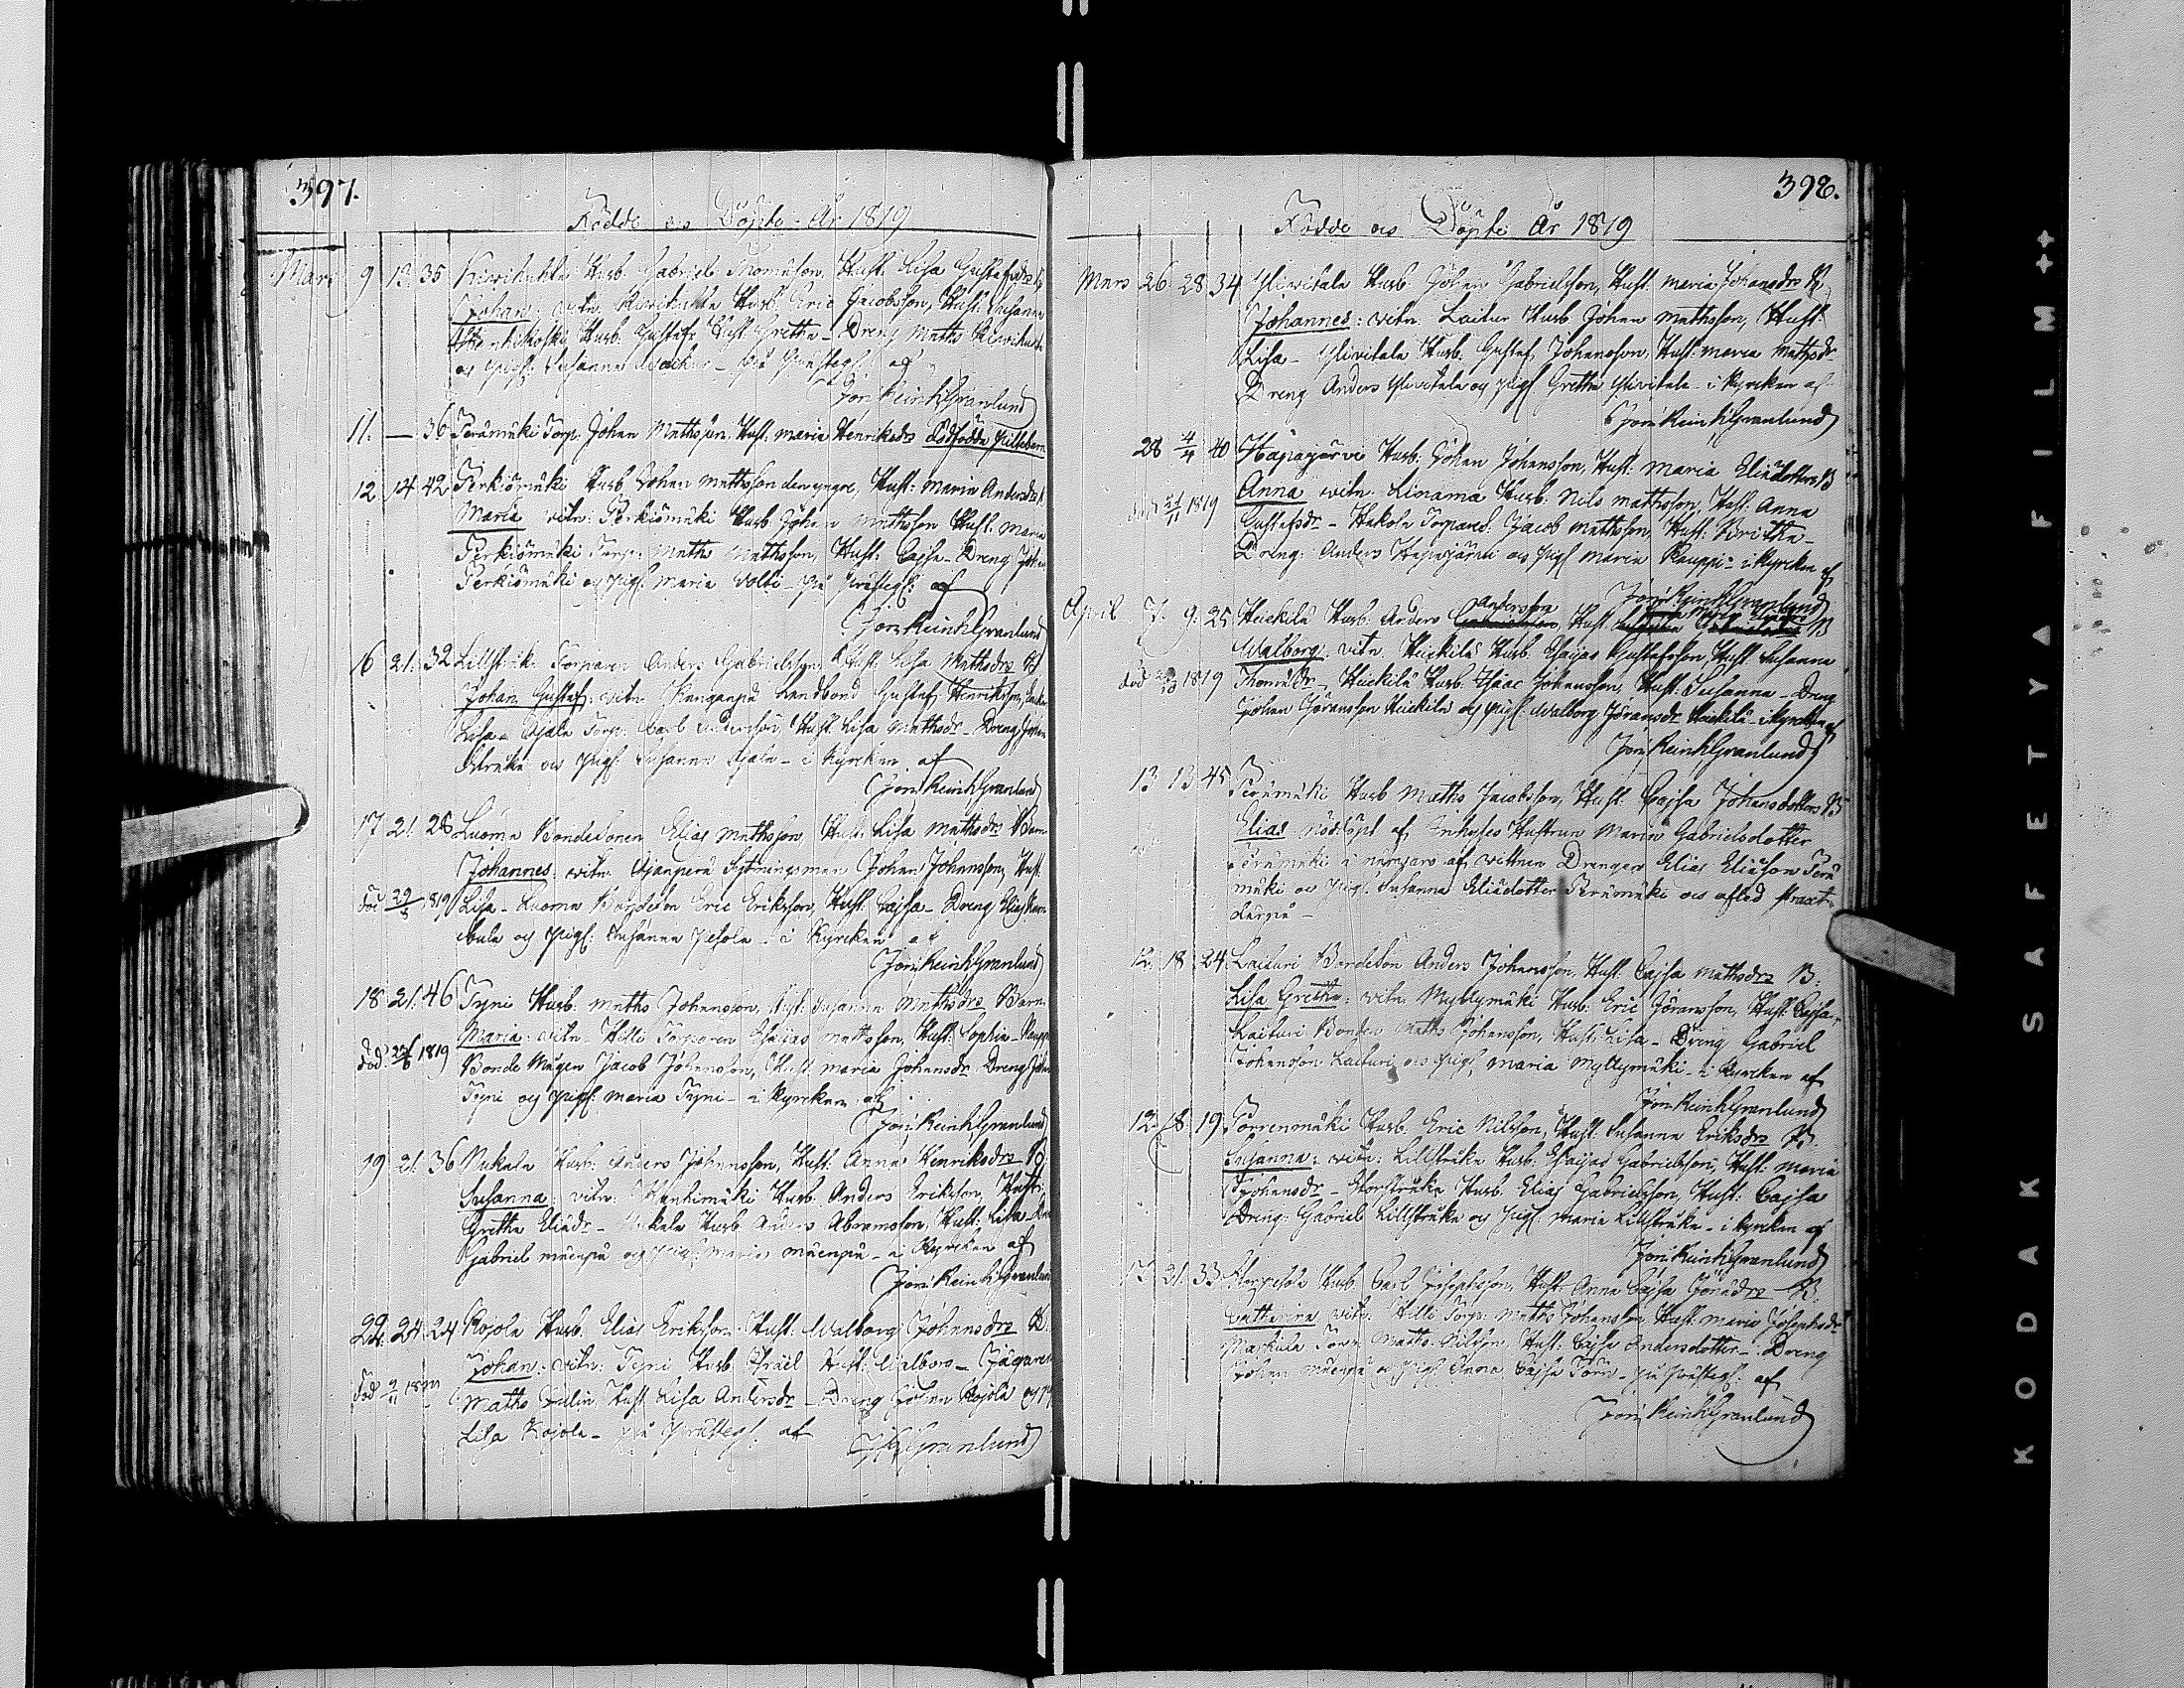 397.
Födde och Döpte År 1819
Mars 9 13 35 Kiwihuhta Husb. Gabriel Thomasson, Hust. Lisa Gustafsdr
Johan: vitn. Kiwihuhta Husb. Eric Jacobsson, Hust. Susanna
Husb. Gustaf, Hust. Gretha - Dreng Matts
och Pig. Susanna - på Prästeg. af
Joh: ReinhGranlund
11. — 36 Perämäki Torp. Johan Mathsson, Hust. Maria Henriksdr Dödfödde
12 14 42 Perkiömäki Husb. Johan Mathsson den yngre, Hust. Maria Andersdr
Maria vitn: Perkiömäki Husb. Johan Mathsson Hust. Maria
Perkiömäki Torp. Maths Mathsson, Hust. Cajsa - Dreng Johan
Perkiömäki och Pig. Maria Volti - på Prästeg. af
Joh: ReinhGranlund
16 21. 32 Lillstrük Torparen Anders Gabrielsson, Hust. Lisa Mathsdr B
Johan Gustaf: vitn. Kanganpä Landbond Gustaf Henriksson,
Lisa - Ojala Torp. Carl Andersson, Hust. Lisa Mathsdr - Dreng Johan
och Pig. Susanna Ojala - i Kyrckan af
Joh: ReinhGranlund
17 21. 26 Luoma Bondesonen Elias Mathsson, Hust. Lisa Mathsdr Barn
Johannes: vitn. Johan Johansson, Hust.
död 29/3 1819 Lisa - Luoma Bondeson Eric Eriksson, Hust. Cajsa - Dreng Elias
och Pig. Susanna Pesola - i Kyrckan af
Joh: ReinhGranlund
18 21. 46 Tyni Husb. Maths Johansson, Hust. Susanna Mathsdr Barn
Maria: vitn. Hilli Torparen Esaijas Mathsson, Hust. Sophia -
död 1819 Bonde Mågen Jacob Johansson, Hust. Maria Johansdr Dreng Johan
Tyni och Pig. Maria Tyni - i Kyrckan af
Joh: ReinhGranlund
19 21. 36 Nukala Husb. Anders Johansson, Hust. Anna Henriksdr B
Susanna: vitn: Hankimäki Husb. Anders Eriksson, Hust.
Gretha Eliædr - Nukala Husb. Anders Abramsson, Hust. Lisa -
Gabriel Mäenpä och Pig. Maria Mäenpä - i Kyrckan af
Joh: ReinhGranlund
22. 24. 24 Kojola Husb. Elias Eriksson Hust. Walborg Johansdr B
Johan: vitn: Tyni Husb. Israel Hust. Walborg - Jägaren
Maths Hust. Lisa Andersdr - Dreng Johan Kojola och
Lisa Kojola - på Prästeg. af
JRGranlund
398.
Födde och Döpte År 1819
Mars 26 28 34 Yliwitala Husb. Johan Gabrielsson, Hust. Maria Johansdr B
Johannes: vitn. Laituri Husb. Johan Mathsson, Hust.
Lisa - Yliwitala Husb. Gustaf Johansson, Hust. Maria Mathsdr
Dreng Anders Yliwitala och Pig. Gretha Yliwitala - i Kyrckan af
Joh: ReinhGranlund
28 4/4 40 Hapajärvi Husb. Johan Johansson, Hust. Maria Eliædotters B
Anna vitn: Linama Husb. Nils Mathsson, Hust. Anna
1819 Gustafsdr - Hakola Torpand. Jacob Mathsson, Hust. Britha -
Dreng. Anders Hapajärvi och Pig. Maria Kauppi - i Kyrckan af
Joh: ReinhGranlund
April 7. 9. 25 Heickilä Husb. Anders Andersson Hust. B
Walborg: vitn. Heickilä Husb. Esaijas Gustafsson, Hust. Susanna
död 1819 Thomædr - Heickilä Husb. Isaac Johansson, Hust. Susanna - Dreng
Johan Göransson Heickilä och Pig. Walborg Göransdr Heickilä - i Kyrckan af
Joh: ReinhGranlund
13 13 45 Perämäki Husb. Maths Jacobsson, Hust. Cajsa Johansdotters B
Elias Nöddöpt af Inhyses Hustrun Maria Gabrielsdotter
Perämäki i närvaro af vittnen Drengen Elias Eliæson Perä
mäki och Pig. Susanna Eliædotter Perämäki och afled strax
derpå -
12. 18 24 Laituri Bondeson Anders Johansson, Hust. Cajsa Mathsdr B:
Lisa Gretha: vitn. Myllymäki Husb. Eric Göransson, Hust. Cajsa -
Laituri Bonden Maths Johansson, Hust. Lisa - Dreng Gabriel
Johansson Laituri och Pig. Maria Myllymäki - i Kyrckan af
Joh: ReinhGranlund
12. 18. 19 Porrenmäki Husb. Eric Nilsson, Hust. Susanna Eriksdr B.
Susanna: vitn: Lillstrüka Husb. Esaijas Gabrielsson, Hust. Maria
Johansdr - Storstrüka Husb. Elias Gabrielsson, Hust. Cajsa
Dreng: Gabriel Lillstrüka och Pig. Maria Lillstrüka - i Kyrckan af
Joh: ReinhGranlund
21. 33 Husb. Carl Josephsson, Hust. Anna Cajsa B.
Catharina vitn: Hilli Torp. Maths Johansson Hust. Maria Josephsdr
Markula Maths Nilsson, Hust. Cajsa Andersdotter - Dreng
Johan Mäenpä och Pig. Anna Cajsa - på Prästeg. af
Joh: ReinhGranlund
KODAK SAFETY FILM